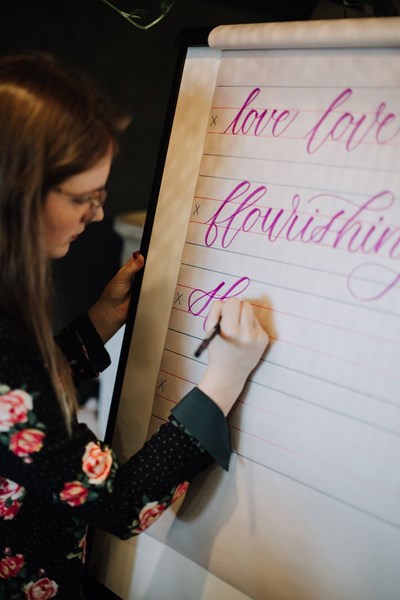 x love love
x flourishin
x
x